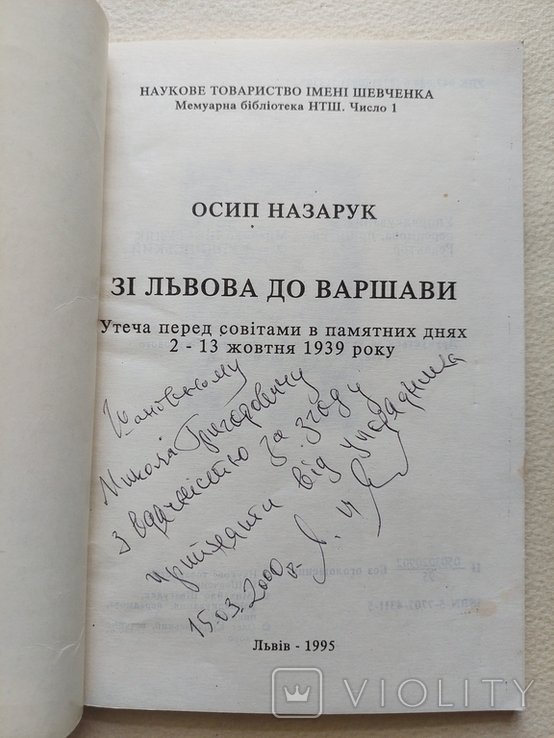 НАУКОВЕ ТОВАРИСТВО ІМЕНІ ШЕВЧЕНКА
Мемуарна бібліотека НТШ. Число 1
ОСИП НАЗАРУК
ЗІ ЛЬВОВА ДО ВАРШАВИ
Утеча перед совітами в памятних днях
2 - 13 жовтня 1939 року
Шановному
Миколі Григоровичу
з вдячністю за згоду
приїхати від упорядника
15.03.2000 р.
Львів - 1995
VIOLITY